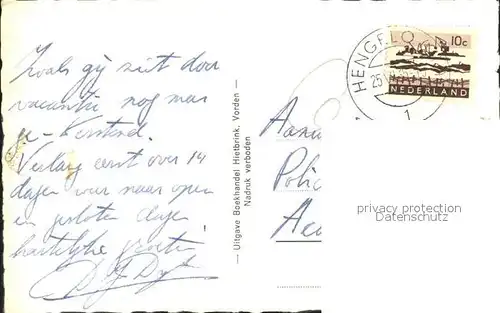 Zoals gij ziet door
vacantie nog maar
Verlang eerst over 14
dagen weer naar open
en gesloten dagen
hartelijke groeten
— Uitgave Boekhandel Hietbrink, Vorden —
Nadruk verboden
HENGELO
25
1
10c
NEDERLAND
Aan
Poli
privacy protection
Datenschutz